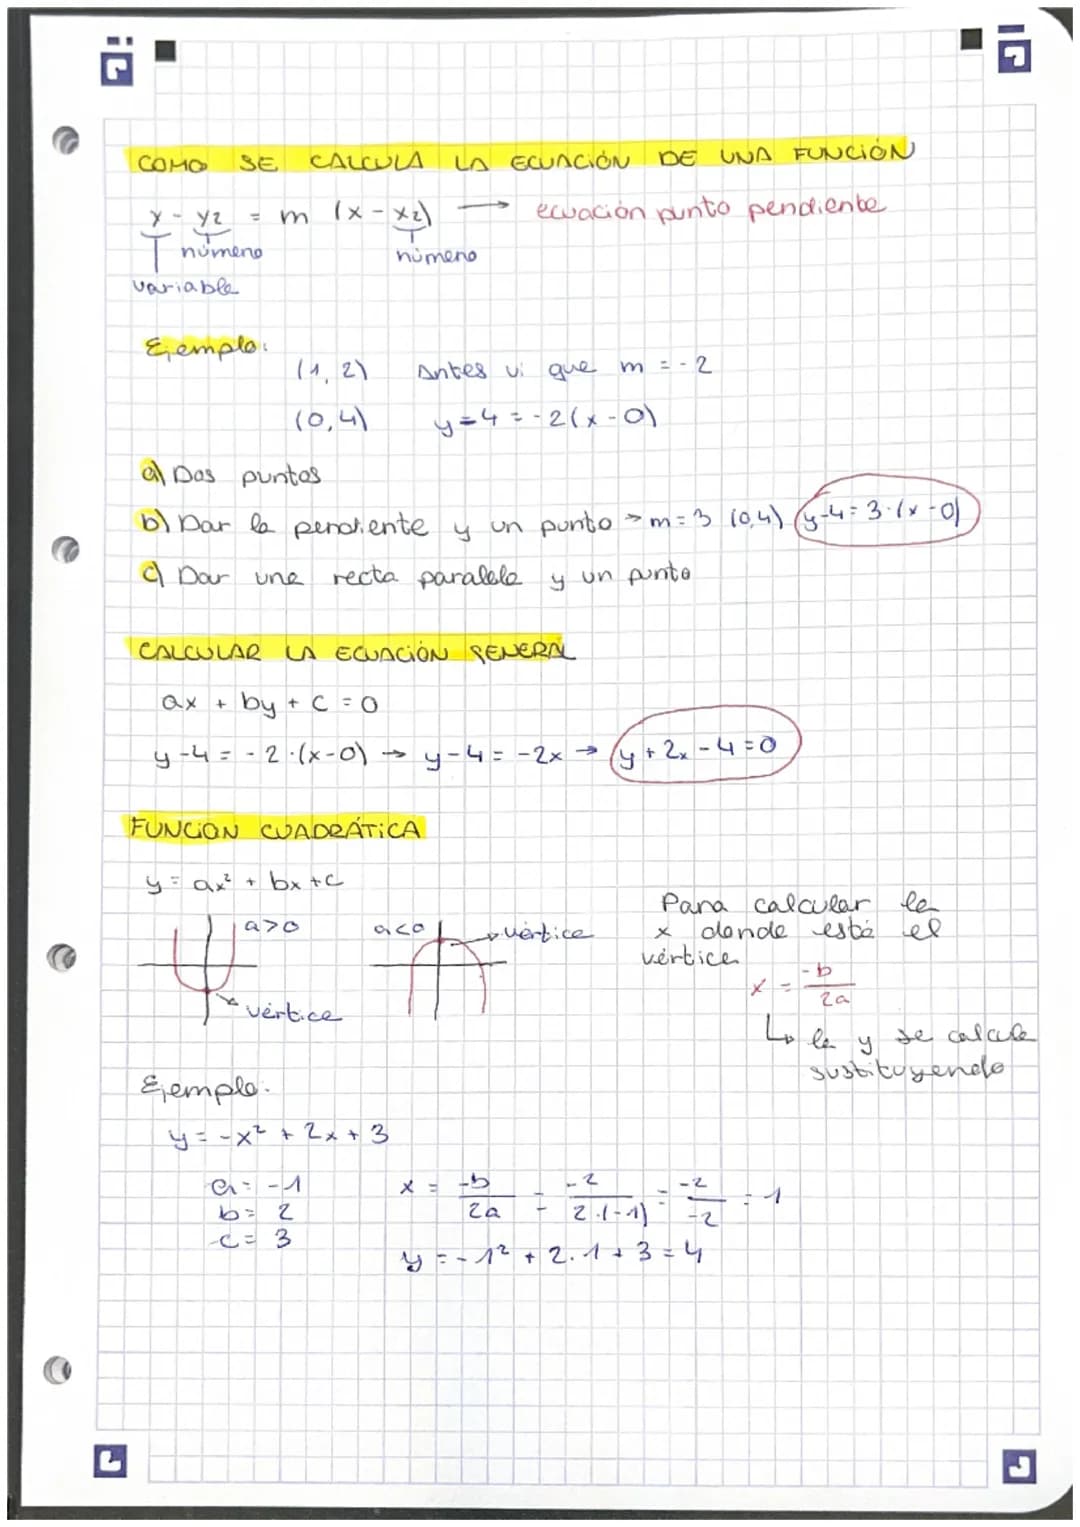 COMO SE CALCULA LA ECUACIÓN DE UNA FUNCIÓN
y - y2 = m (x - x2) → ecuación punto pendiente
número número
variable
Ejemplo:
(1, 2) Antes vi que m = -2
(0,4) y=4 = -2(x-0)
a) Dos puntos
b) Dar la pendiente y un punto → m=3 (0,4) y-4=3·(x-0)
c) Dar una recta paralela y un punto
CALCULAR LA ECUACIÓN GENERAL
ax + by + c = 0
y-4 = -2·(x-0) → y-4 = -2x → y+2x-4=0
FUNCION CUADRÁTICA
y = ax² + bx + c
a>0 a<0 vértice
vértice
Para calcular la
x donde está el
vértice
x = -b/2a
↳ la y se calcula
sustituyendo
Ejemplo:
y = -x² + 2x + 3
a = -1
b = 2
c = 3
x = -b/2a = -2/2·(-1) = -2/-2 = 1
y = -1² + 2·1 + 3 = 4